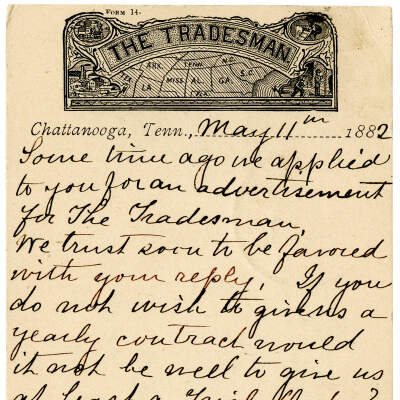 Form 14.
THE TRADESMAN.
TEX. ARK. TENN. N.C.
LA. MISS. AL. GA. S.C.
FLA.
Chattanooga, Tenn., May 11th 1882
Some time ago we applied
to you for an advertisement
for The Tradesman,
We trust soon to be favored
with your reply. If you
do not wish to give us a
yearly contract would
it not be well to give us
at least a Trial